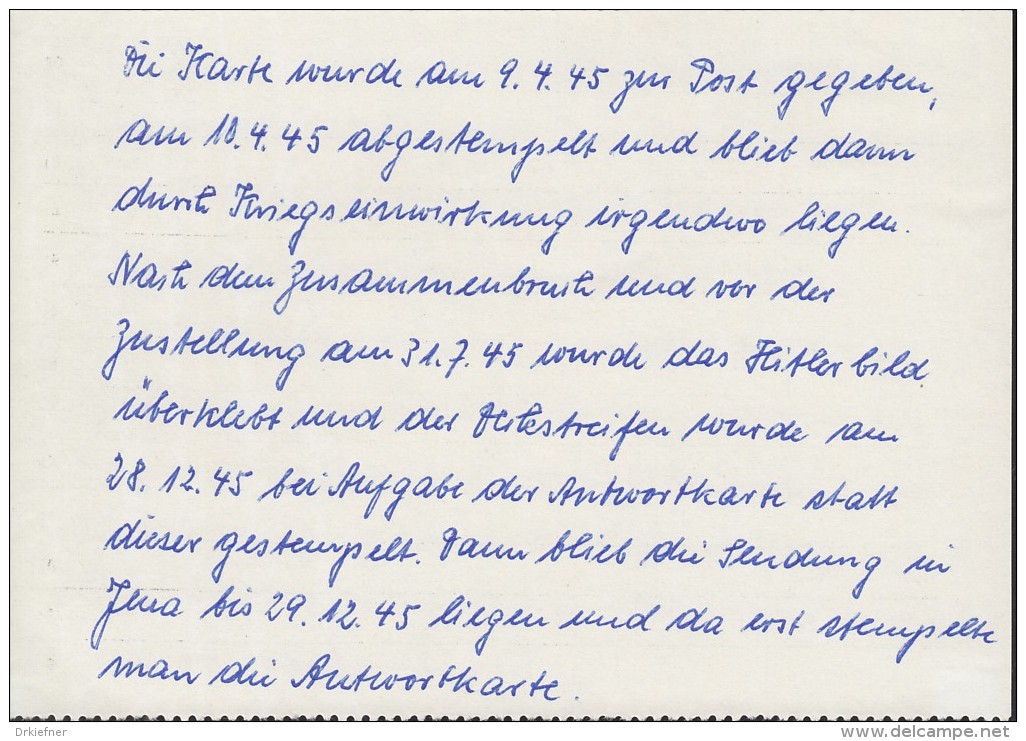 Die Karte wurde am 9.4.45 zur Post gegeben,
am 10.4.45 abgestempelt und blieb dann
durch Kriegseinwirkung irgendwo liegen.
Nach dem Zusammenbruch und vor der
Zustellung am 31.7.45 wurde das Hitlerbild
überklebt und der Deckstreifen wurde am
28.12.45 bei Aufgabe der Antwortkarte statt
dieser gestempelt. Dann blieb die Sendung in
Jena bis 29.12.45 liegen und da erst stempelte
man die Antwortkarte.
Drkiefner
www.delcampe.net